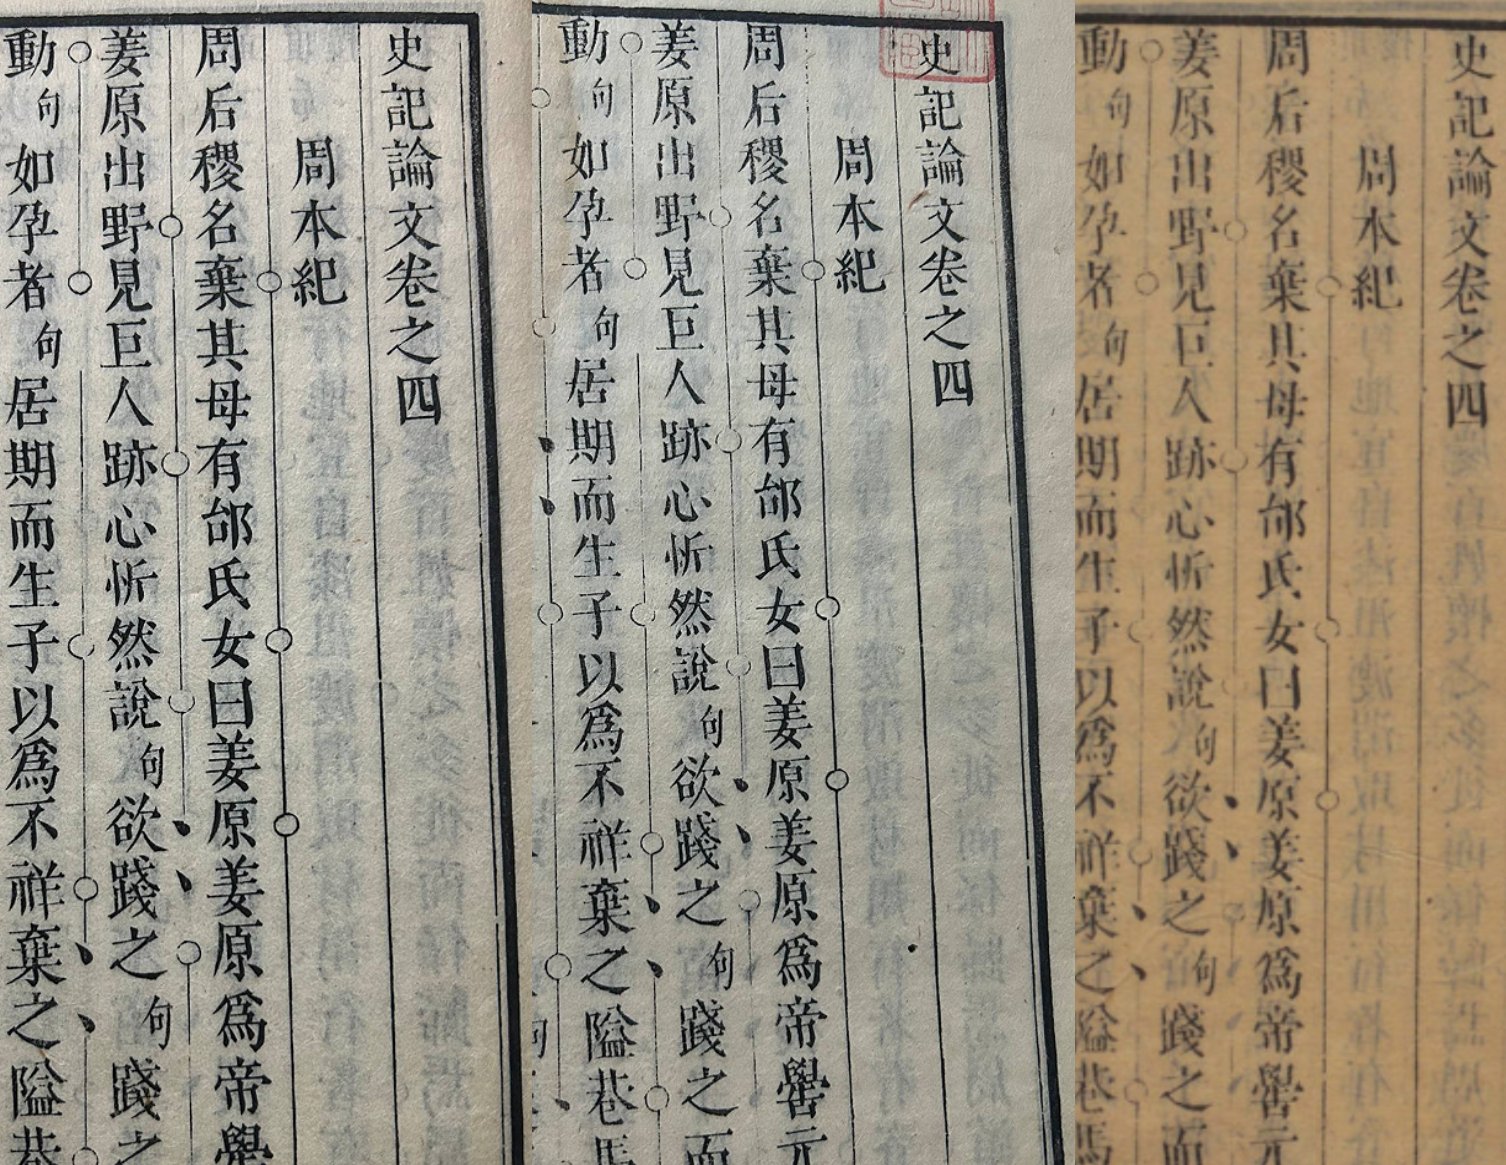 史記論文卷之四
周本紀
周后稷名棄其母有邰氏女曰姜原姜原爲帝嚳
姜原出野見巨人跡心忻然說句欲踐之句踐之
動句如孕者句居期而生子以爲不祥棄之隘巷
史記論文卷之四
周本紀
周后稷名棄其母有邰氏女曰姜原姜原爲帝嚳元
姜原出野見巨人跡心忻然說句欲踐之句踐之而
動句如孕者句居期而生子以爲不祥棄之隘巷馬
史記論文卷之四
周本紀
周后稷名棄其母有邰氏女曰姜原姜原爲帝嚳元
姜原出野見巨人跡心忻然說句欲踐之句踐之而
動句如孕者句居期而生子以爲不祥棄之隘巷馬